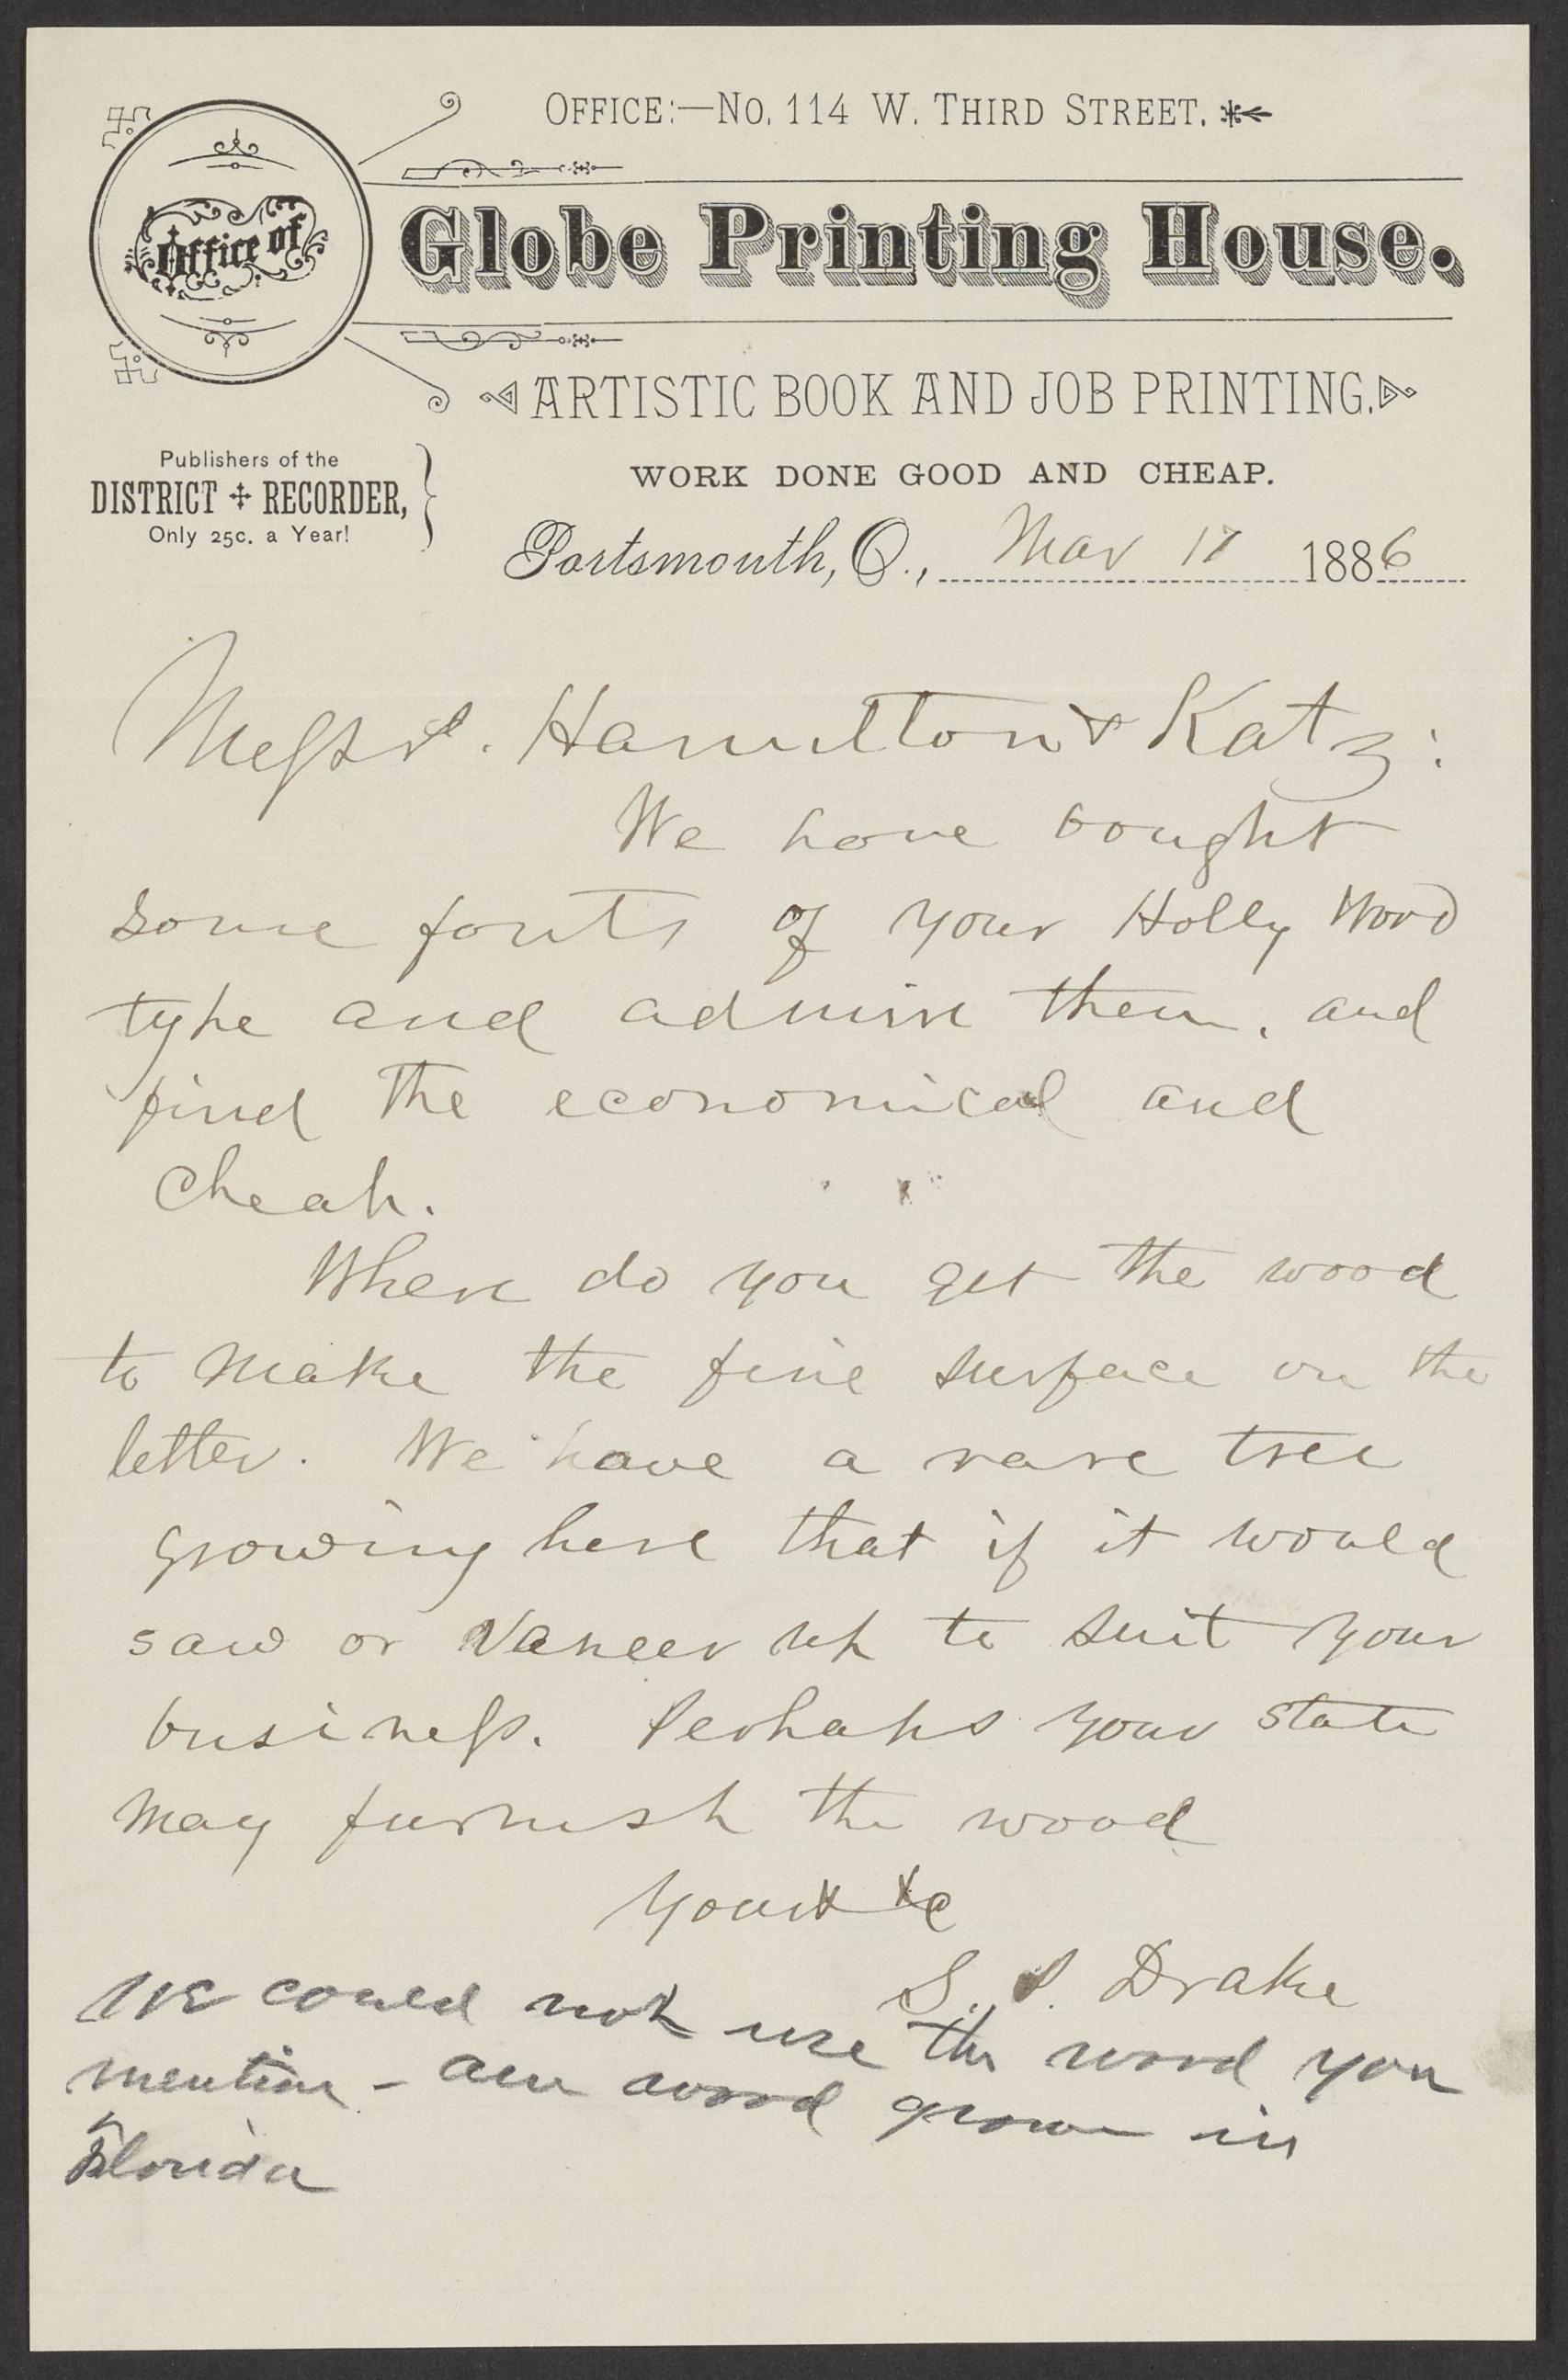 OFFICE:—No. 114 W. THIRD STREET.
Office of
Globe Printing House.
ARTISTIC BOOK AND JOB PRINTING.
Publishers of the
DISTRICT RECORDER,
Only 25c. a Year!
WORK DONE GOOD AND CHEAP.
Portsmouth, O., Mar 17 1886
Messrs. Hamilton & Katz:
We have bought
some fonts of your Holly Wood
type and admire them, and
find the economical and
cheap.
Where do you get the wood
to make the fine surface on the
letter. We have a rare tree
growing here that if it would
saw or Vaneer up to suit your
business. Perhaps your state
may furnish the wood
Yours &c
S. P. Drake
We could not use the wood you
mention - our wood grown in
Florida